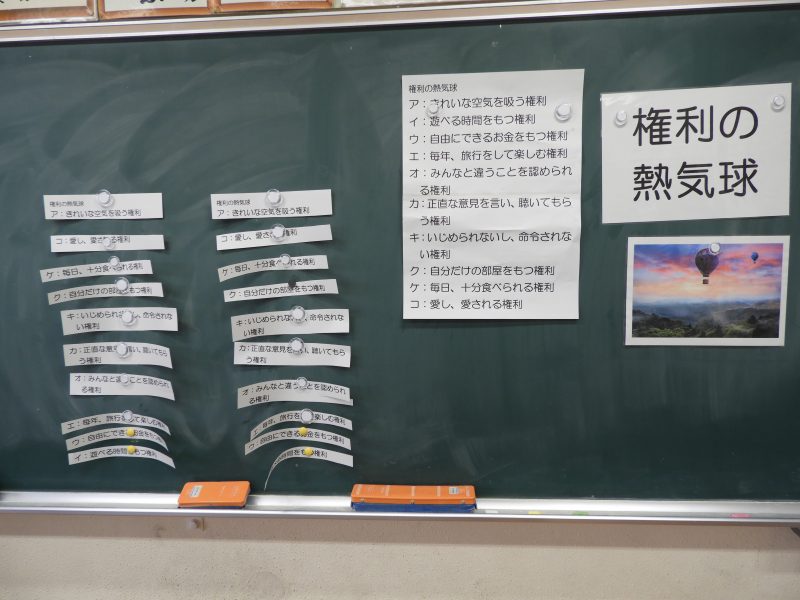 権利の熱気球
ア：きれいな空気を吸う権利
コ：愛し、愛される権利
ケ：毎日、十分食べられる権利
ク：自分だけの部屋をもつ権利
キ：いじめられないし、命令されな
い権利
カ：正直な意見を言い、聴いてもら
う権利
オ：みんなと違うことを認められ
る権利
エ：毎年、旅行をして楽しむ権利
ウ：自由にできるお金をもつ権利
イ：遊べる時間をもつ権利
権利の熱気球
ア：きれいな空気を吸う権利
コ：愛し、愛される権利
ケ：毎日、十分食べられる権利
ク：自分だけの部屋をもつ権利
キ：いじめられないし、命令されな
い権利
カ：正直な意見を言い、聴いてもら
う権利
オ：みんなと違うことを認められ
る権利
エ：毎年、旅行をして楽しむ権利
ウ：自由にできるお金をもつ権利
時間をもつ権利
権利の熱気球
ア：きれいな空気を吸う権利
イ：遊べる時間をもつ権利
ウ：自由にできるお金をもつ権利
エ：毎年、旅行をして楽しむ権利
オ：みんなと違うことを認められ
る権利
カ：正直な意見を言い、聴いてもら
う権利
キ：いじめられないし、命令されな
い権利
ク：自分だけの部屋をもつ権利
ケ：毎日、十分食べられる権利
コ：愛し、愛される権利
権利の
熱気球